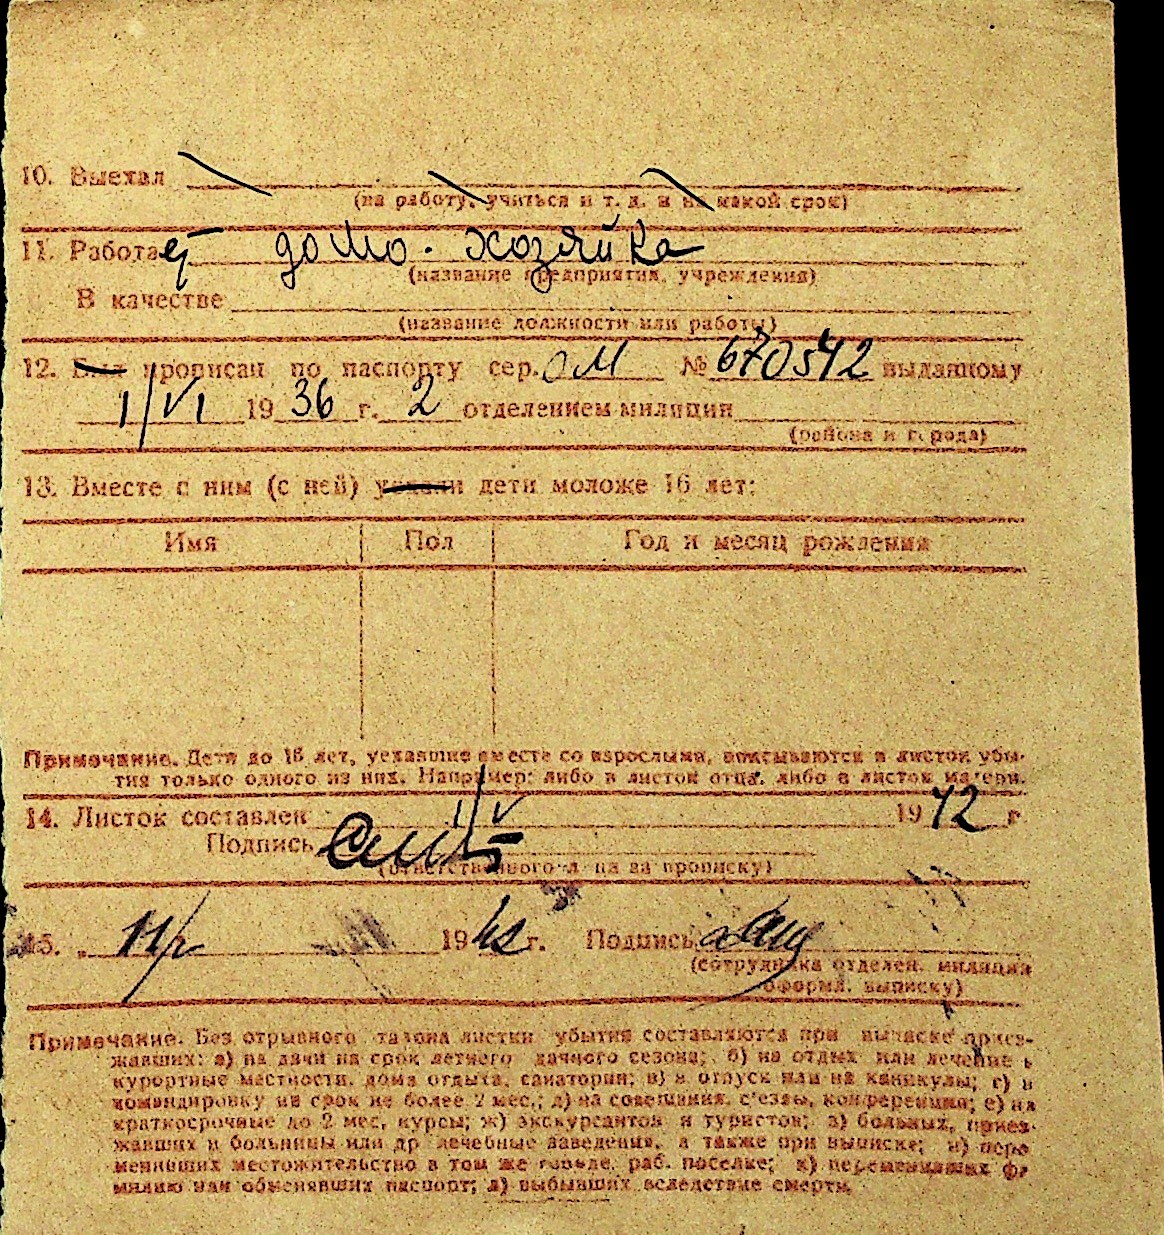 10. Выехал
(на работу, учиться и т. д. и на какой срок)
11. Работает домо-хозяйка
(название предприятия, учреждения)
В качестве
(название должности или работы)
12. Был прописан по паспорту сер. ОМ № 670542 выданному
1/VI 1936 г. 2 отделением милиции
(района и города)
13. Вместе с ним (с ней) уехали дети моложе 16 лет:
Имя Пол Год и месяц рождения
Примечание. Дети до 16 лет, уехавшие вместе со взрослыми, вписываются в листок убы-
тия только одного из них. Например: либо в листок отца, либо в листок матери.
14. Листок составлен 1/V 1942 г
Подпись
(ответственного л-ца за прописку)
15. " 19 г. Подпись
(сотрудника отделен. милиции
оформл. выписку)
Примечание. Без отрывного талона листки убытия составляются при выписке приез-
жавших: а) на дачи на срок летнего дачного сезона; б) на отдых или лечение в
курортные местности, дома отдыха, санатории; в) в отпуск или на каникулы; г) в
командировку на срок не более 2 мес.; д) на совещания, с'езды, конференции; е) на
краткосрочные до 2 мес. курсы; ж) экскурсантов и туристов; з) больных, приез-
жавших в больницы или др лечебные заведения, а также при выписке; и) пере
менивших местожительство в том же городе, раб. поселке; к) переменивших фа
милию или обменявших паспорт; л) выбывших вследствие смерти.